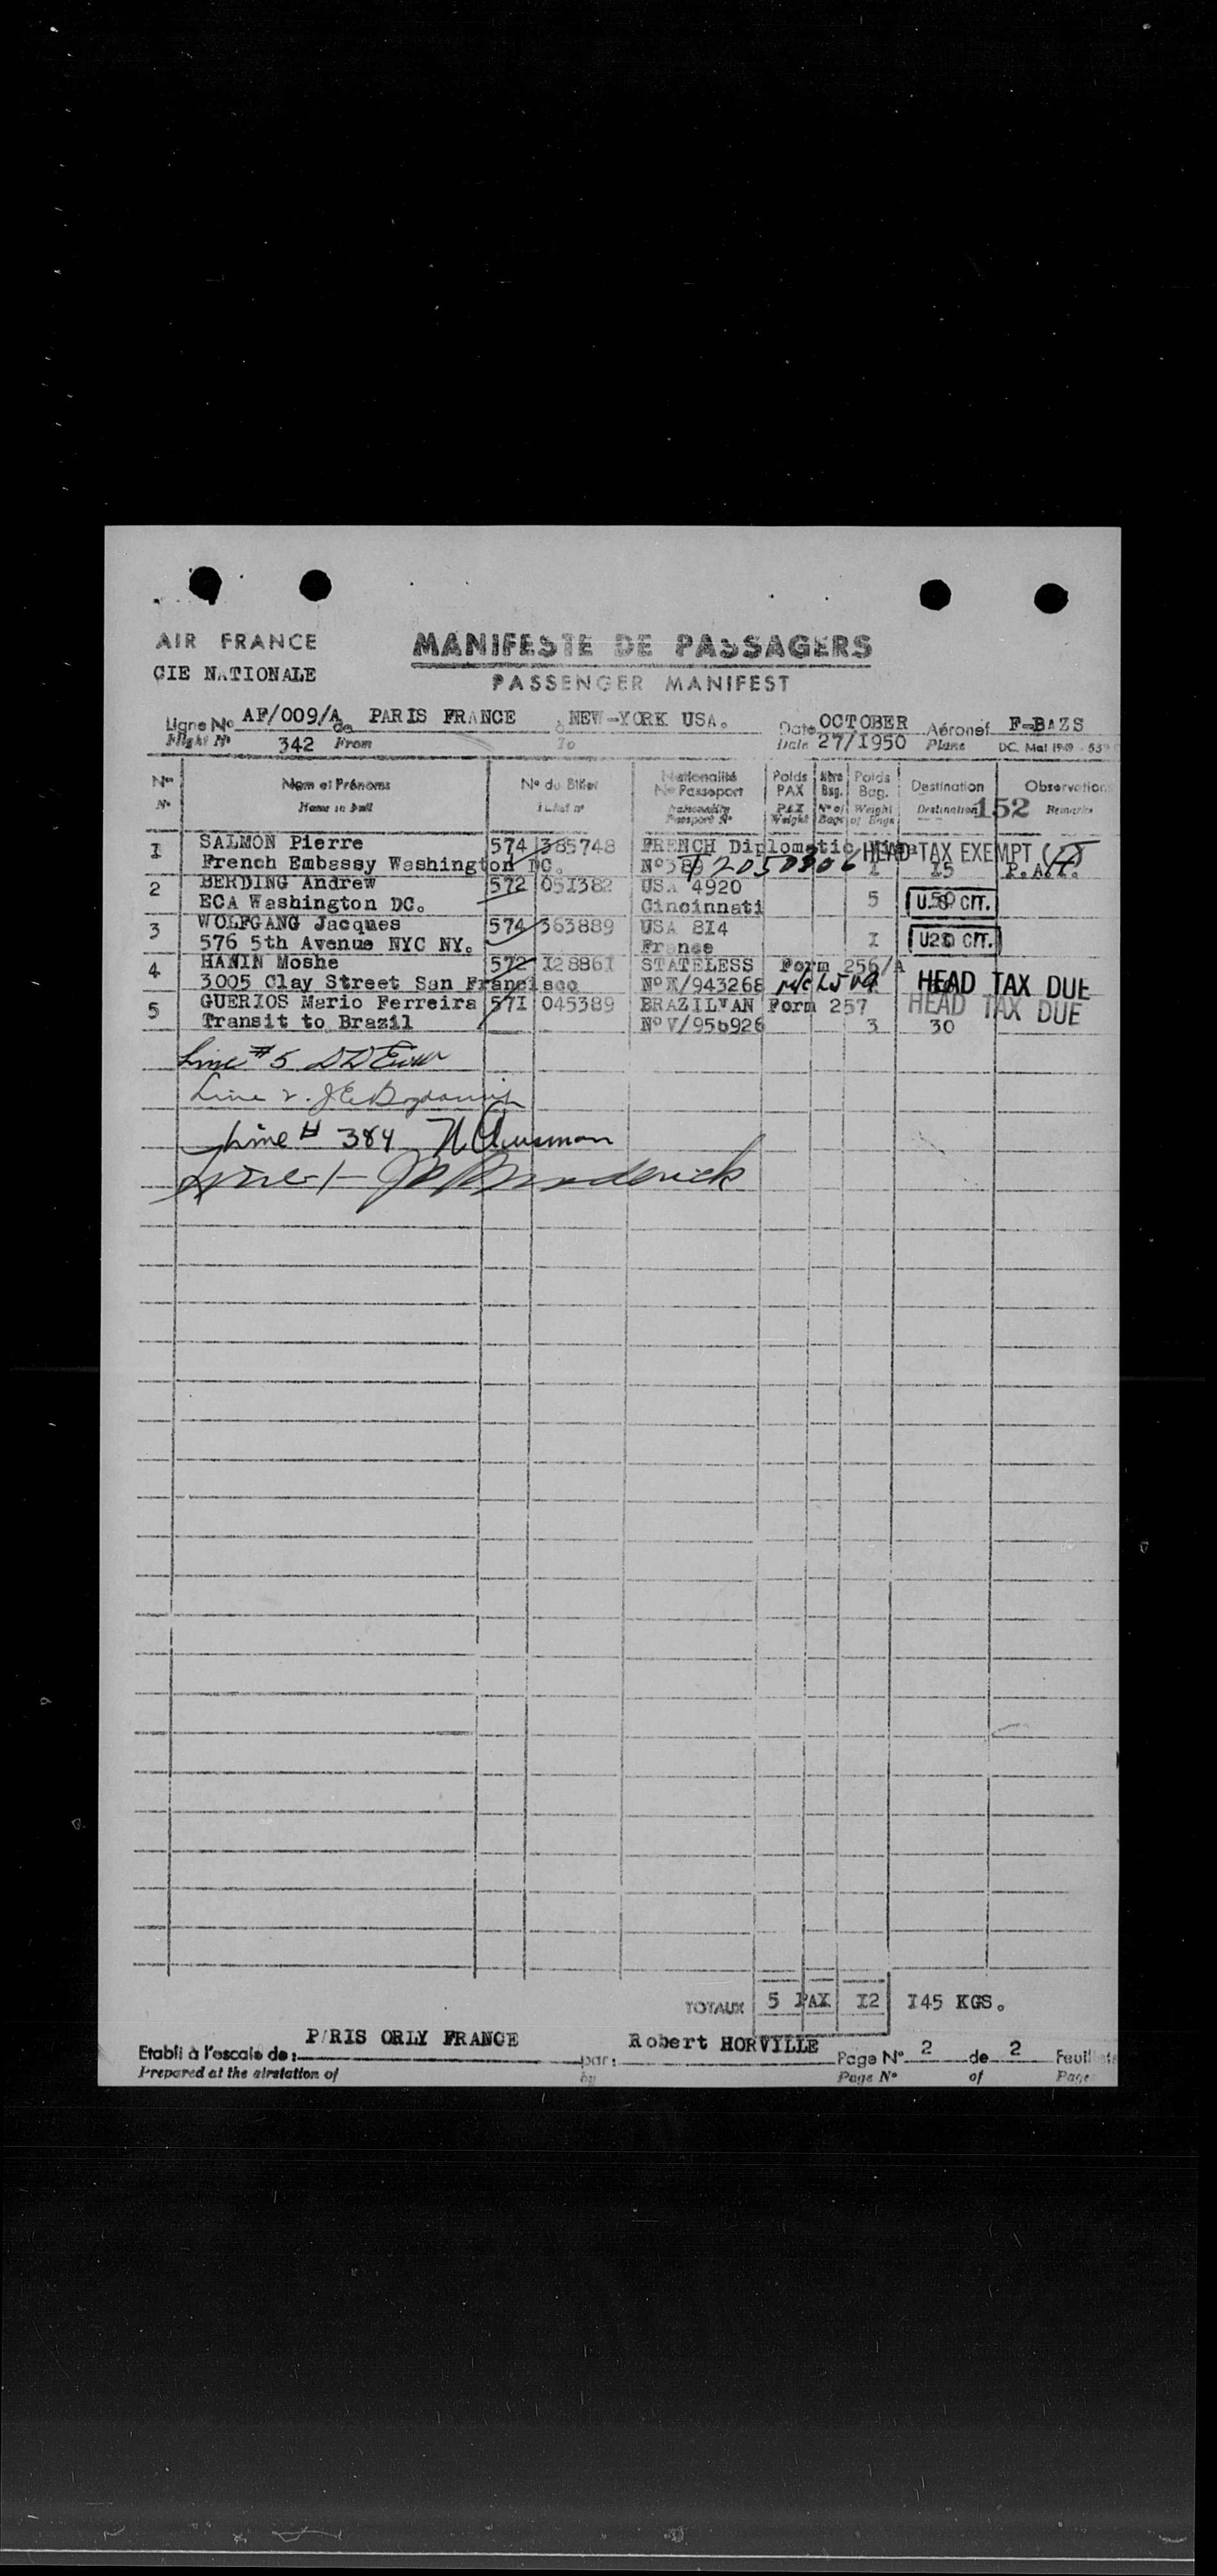 AIR FRANCE
CIE NATIONALE
MANIFESTE DE PASSAGERS
PASSENGER MANIFEST
Ligne No AF/009/A de PARIS FRANCE à NEW-YORK USA. Date OCTOBER Aéronef F-BAZS
Flight No 342 From To Date 27/I950 Plane DC. Mai 1949
Nos Nom et Prénoms No du Billet Nationalité No Passeport Poids PAX Nbre Bag. Poids Bag. Destination Observations
No Name in full Ticket no Nationality Passport No PAX Weight No of Bags Weight of Bags Destination 152 Remarks
I SALMON Pierre 574 385748 FRENCH Diplomatic HEAD TAX EXEMPT
French Embassy Washington DC. T2050806 I I5 P.A.T.
2 BERDING Andrew 572 05I382 USA 4920
ECA Washington DC. Cincinnati 5 50 U.S. CIT.
3 WOLFGANG Jacques 574 363889 USA 8I4
576 5th Avenue NYC NY. France I U.S. CIT.
4 HANIN Moshe 572 I2886I STATELESS Form 256/A
3005 Clay Street San Francisco No X/943268 HEAD TAX DUE
5 GUERIOS Mario Ferreira 57I 045389 BRAZILVAN Form 257 HEAD TAX DUE
Transit to Brazil No V/956926 3 30
Line #5
Line 2.
Line # 384
Line 1
TOTAUX 5 PAX I2 I45 KGS.
Etabli à l'escale de: PARIS ORLY FRANCE par: Robert HORVILLE Page No 2 de 2 Feuillets
Prepared at the airstation of by Page No of Pages